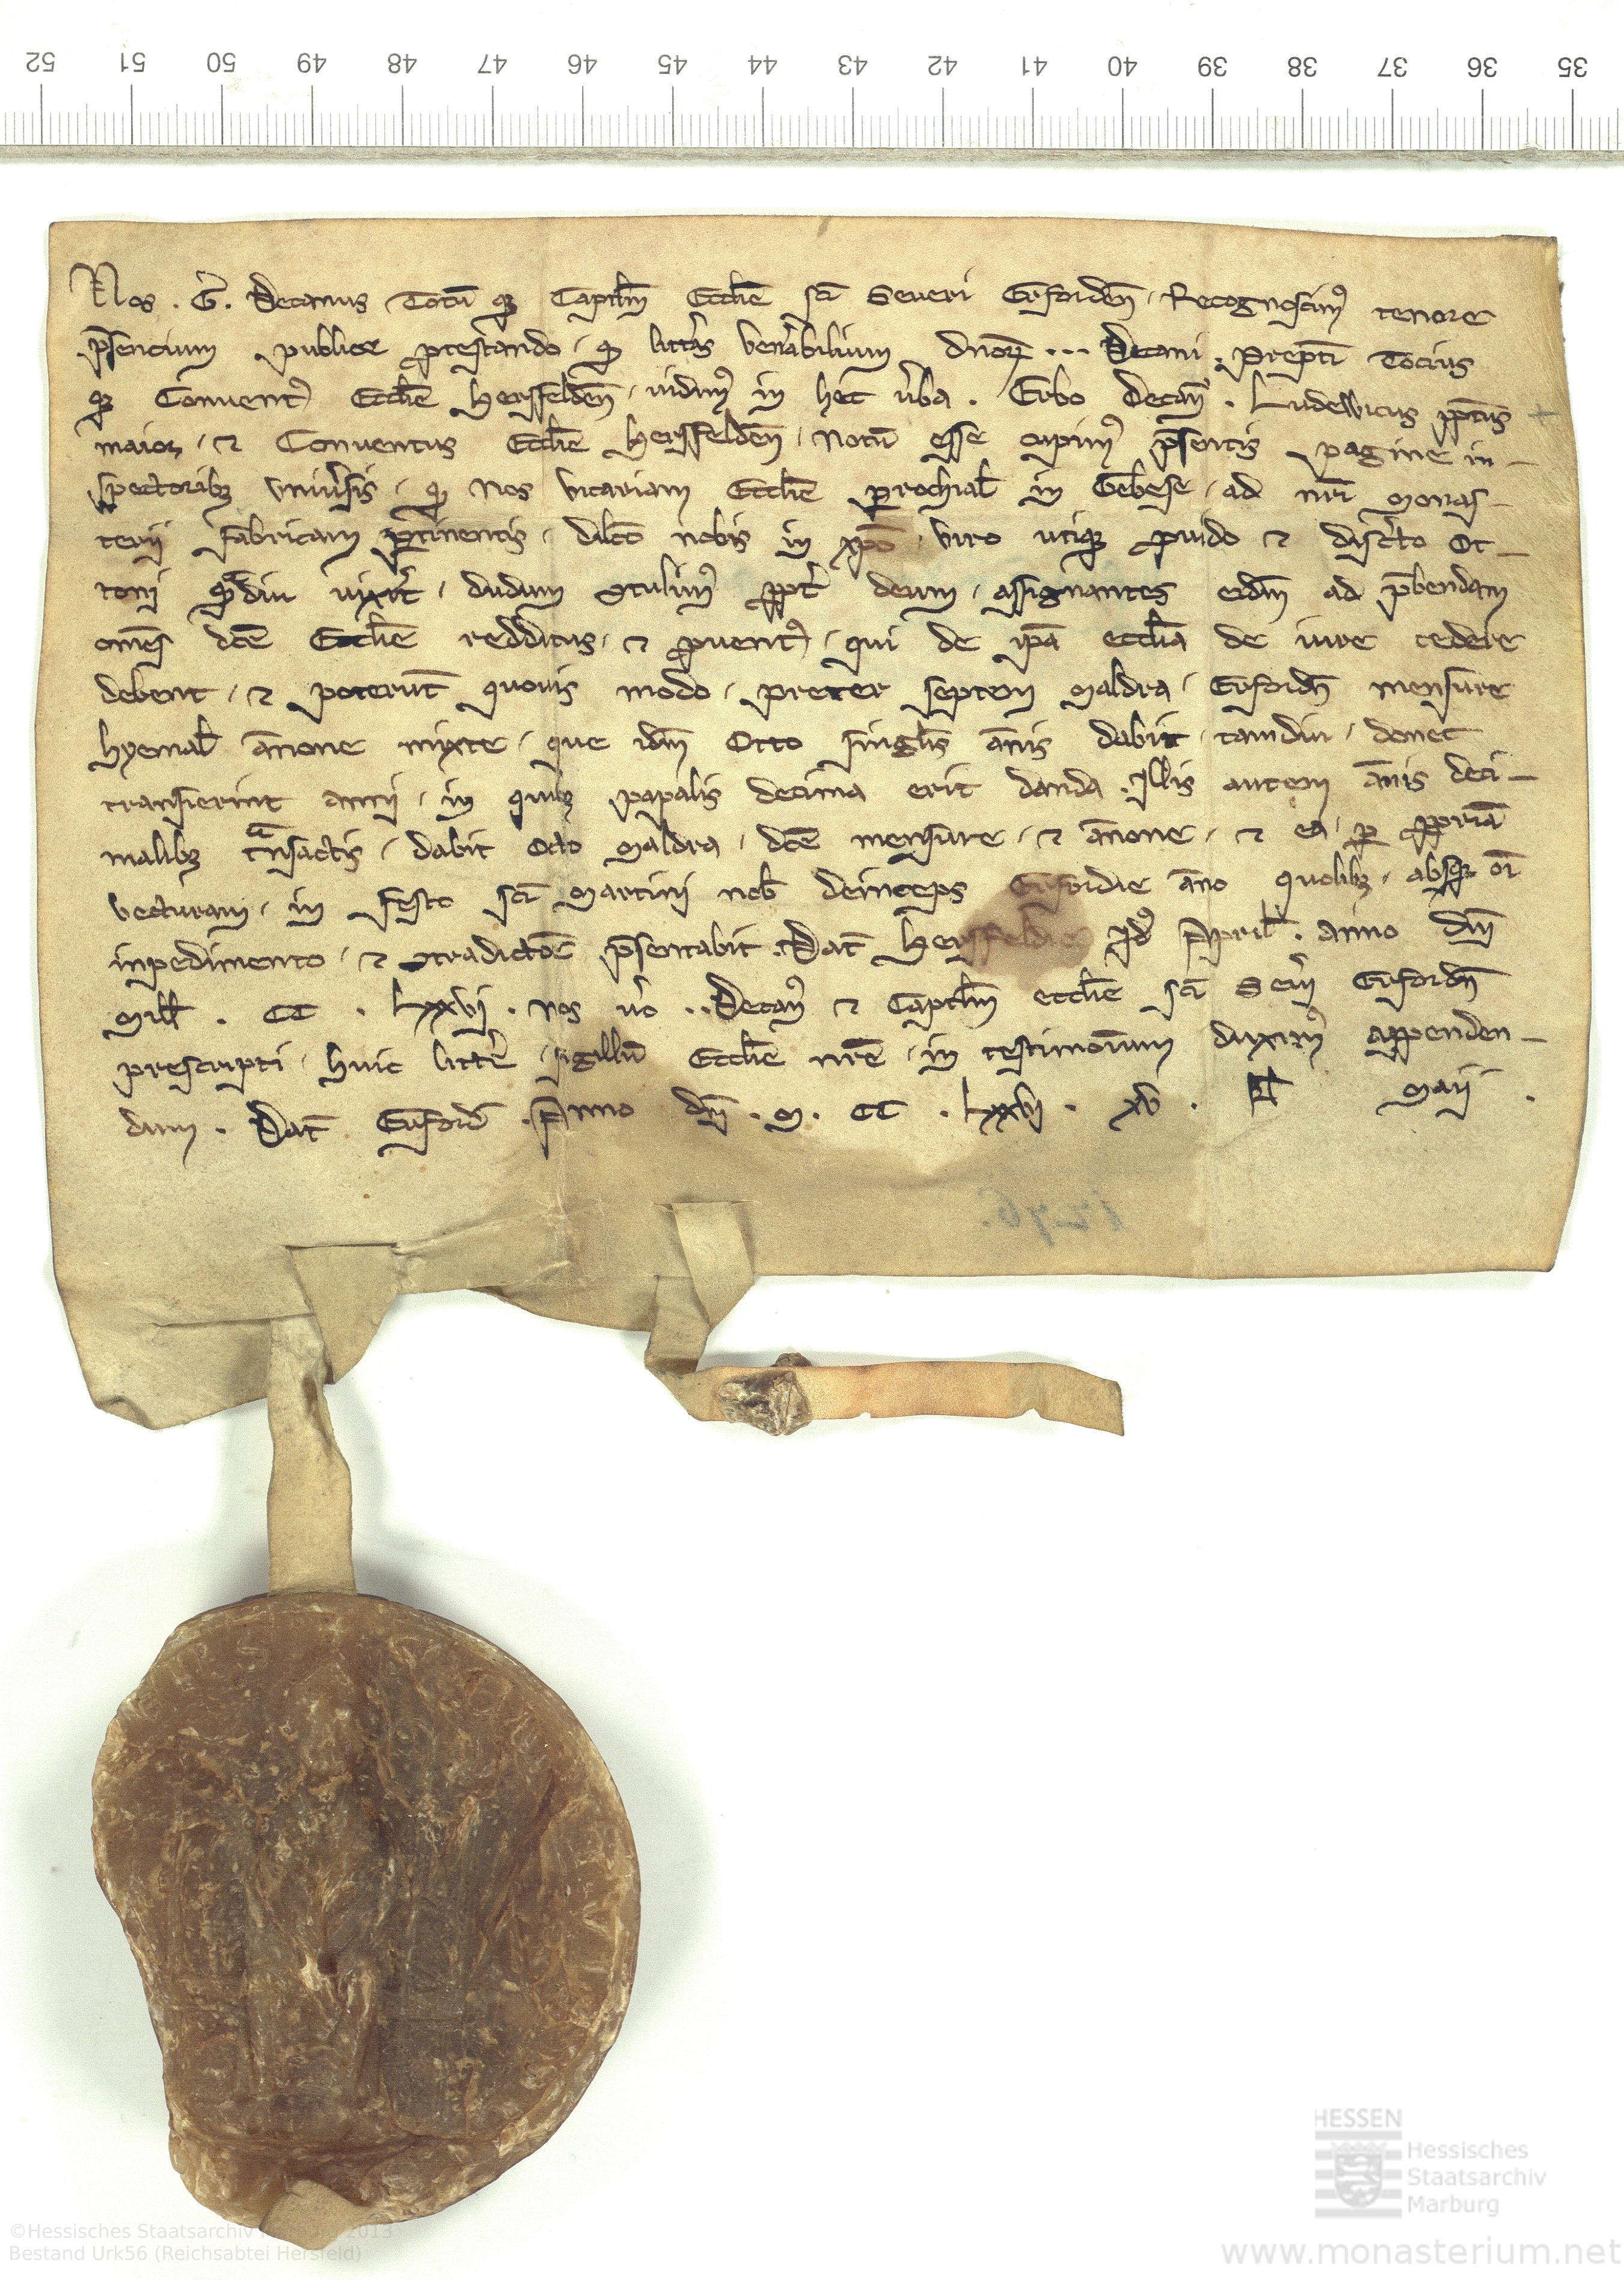 52 51 50 49 48 47 46 45 44 43 42 41 40 39 38 37 36 35
Nos . G̅. Decanus Totū q; Capitlm̅ Ecclīe sc̅i Seueri Erfordeñ. Recognoscimꝰ tenore
p̅sencium publice ꝓtestando . qđ litt̅as Ven̅abilium dnoꝝ ... Decani . Prepti̅ Tocius
q; Conuentꝰ Ecclīe Hersfeldeñ . uidimꝰ in hec u̅ba . Erbo Decanꝰ . Ludewicus ꝓpt̅us
maior , ⁊ Conuentus Ecclīe Hersfeldeñ . Notū esse cupimꝰ p̅sentis pagine in-
spectorib; vniu̅sis . qđ Nos vicariam Ecclīe ꝑrochial̅ in Gebese . ad nr̅i Monas-
terij fabricam ꝑtinentis . dilc̅o nobis in xp̅o . viro utiq; ꝓuido ⁊ discr̅to Ot-
tonj qᵃmdiu uixer̅t . dudum ꝯtulimꝰ ꝓpt̅ deum . assignantes eidm̅ ad p̅bendam
om̅es dc̅e Ecclīe redditus . ⁊ ꝓuentꝰ . qui de ip̅a ecclīa de iure cedere
debent . ⁊ poterūt quouis modo . preter septem Maldra . Erfordn̅ mensure
hyemal̅ a̅none mixte . que idm̅ Otto singl̅is a̅nis dabit . tamdiu . donec
transierint annj . in quib; papalis decima erit danda . Illis autem a̅nis deci-
malib; tᵃnsactis . dabit octo Maldra . dc̅e mensure . ⁊ a̅none . ⁊ ea . ꝑ ꝓpriā
vecturam . in festo sc̅i Martinj nob̅ deinceps Erfordie a̅no quolib; . absq; o̅i
inpedimento . ⁊ ꝯtradicto̅e p̅sentabit . Dat̅ Hersfeldie Idꝰ April̅ . anno dn̅i
Mill̅ . CC . Lxxvj . Nos u̅o .. Decanꝰ ⁊ Capitlm̅ ecclīe sc̅i Seu̅i Erfordn̅
prescripti . huic litt̅e . sigillū Ecclīe nr̅e . in testimonium duximꝰ appenden-
dum . Dat̅ Erford̅ . Anno dn̅j . M . CC . Lxxvj . xv . kl̅ Maij .
1276.
HESSEN
Hessisches
Staatsarchiv
Marburg
©Hessisches Staatsarchiv Marburg 2013
Bestand Urk56 (Reichsabtei Hersfeld)
www.monasterium.net